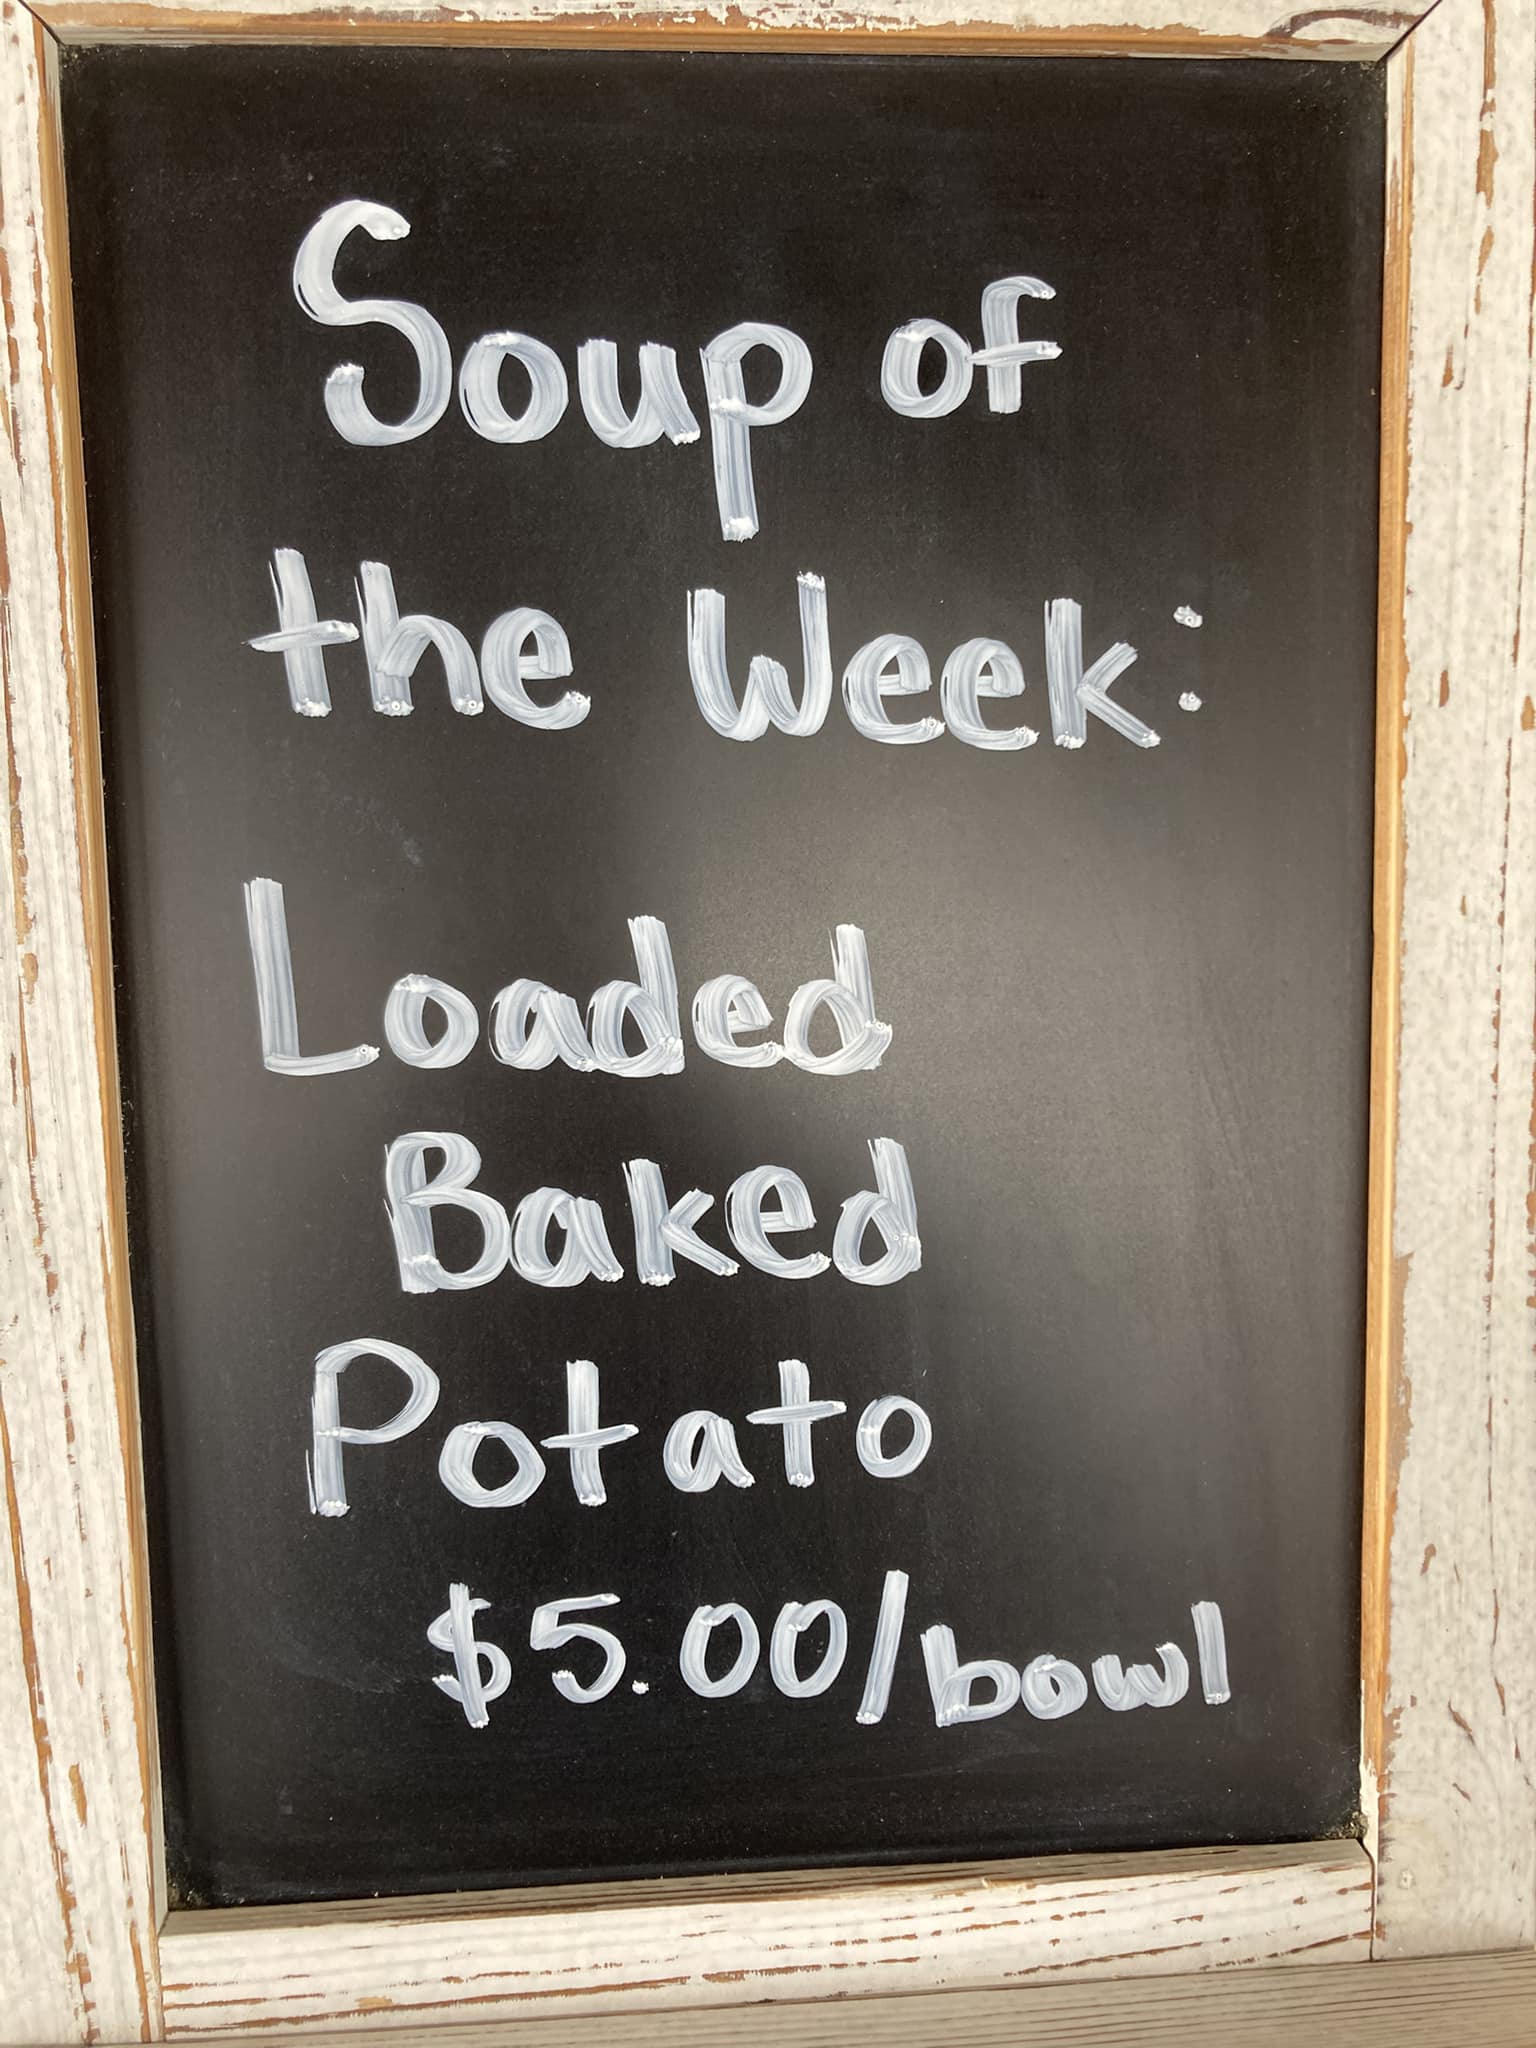 Soup of
the Week:
Loaded
Baked
Potato
$5.00/bowl